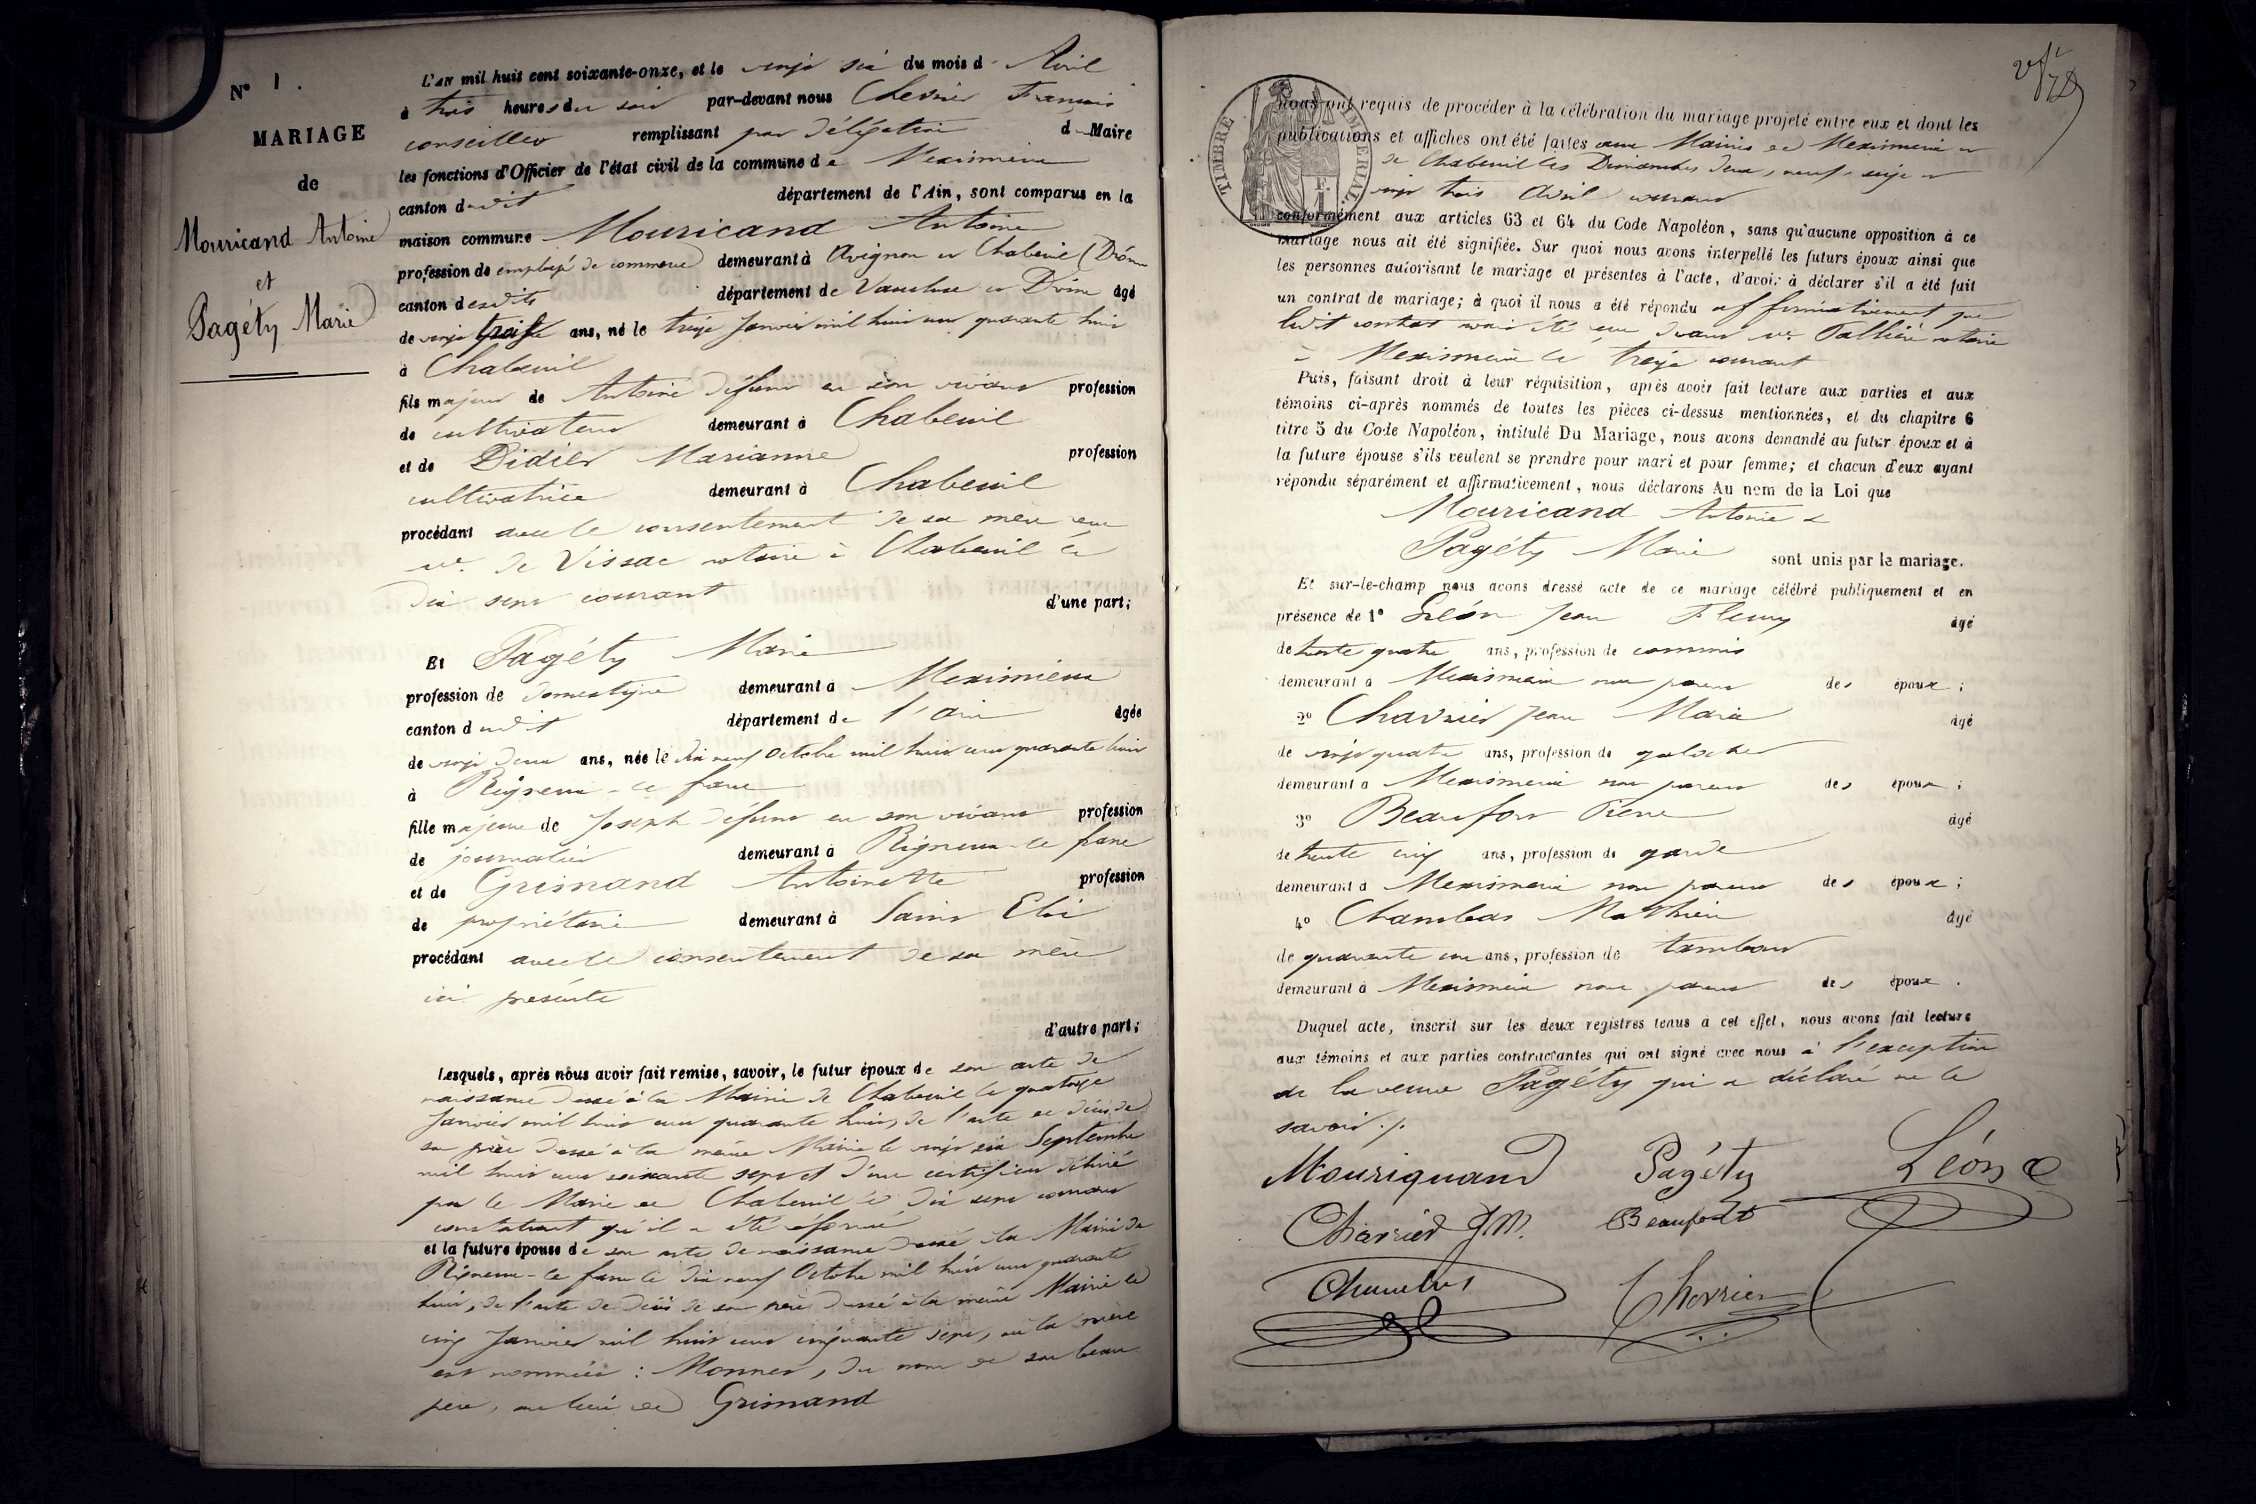 N° 1.
MARIAGE
de
Mouricand Antoine
et
Pagéty Marie
L'AN mil huit cent soixante-onze, et le vingt six du mois d' Avril
à trois heures du soir par-devant nous Chevrier François
conseiller remplissant par délégation d Maire
les fonctions d'Officier de l'état civil de la commune de Meximieux
canton dudit département de l'Ain, sont comparus en la
maison commune Mouricand Antoine
profession de employé de commerce demeurant à Avignon et Chabeuil (Drôme
canton desdits département de Vaucluse et Drôme âgé
de vingt trois ans, né le treize Janvier mil huit cent quarante huit
à Chabeuil
fils majeur de Antoine défunt en son vivant profession
de cultivateur demeurant à Chabeuil
et de Didier Marianne profession
cultivatrice demeurant à Chabeuil
procédant avec le consentement de sa mère reçu
Me de Vissac notaire à Chabeuil le
dix sept courant d'une part;
Et Pagéty Marie
profession de domestique demeurant à Meximieux
canton dudit département de l'Ain âgée
de vingt deux ans, née le dix neuf Octobre mil huit cent quarante huit
à Rigneux-le franc
fille majeure de Joseph défunt en son vivant profession
de journalier demeurant à Rigneux-le franc
et de Grimand Antoinette profession
de propriétaire demeurant à Saint Eloi
procédant avec le consentement de sa mère
ici présente
d'autre part;
Lesquels, après nous avoir fait remise, savoir, le futur époux de son acte de
naissance dressé à la Mairie de Chabeuil le quatorze
Janvier mil huit cent quarante huit, de l'acte de décès de
son père dressé à la même Mairie le vingt six Septembre
mil huit cent soixante sept et d'un certificat délivré
par le Maire de Chabeuil le dix sept courant
constatant qu'il a été réformé
et la future épouse de son acte de naissance dressé à la Mairie de
Rigneux-le franc le dix neuf Octobre mil huit cent quarante
huit, de l'acte de décès de son père dressé à la même Mairie le
cinq Janvier mil huit cent cinquante sept, où la mère
est nommée : Monnet, du nom de son beau
père, au lieu de Grimand
TIMBRE IMPÉRIAL
nous ont requis de procéder à la célébration du mariage projeté entre eux et dont les
publications et affiches ont été faites aux Mairies de Meximieux et
de Chabeuil les Dimanches deux, neuf, seize et
vingt trois Avril courant
conformément aux articles 63 et 64 du Code Napoléon, sans qu'aucune opposition à ce
mariage nous ait été signifiée. Sur quoi nous avons interpellé les futurs époux ainsi que
les personnes autorisant le mariage et présentes à l'acte, d'avoir à déclarer s'il a été fait
un contrat de mariage; à quoi il nous a été répondu affirmativement que
ledit contrat avait été reçu devant Me notaire
à Meximieux le treize courant
Puis, faisant droit à leur réquisition, après avoir fait lecture aux parties et aux
témoins ci-après nommés de toutes les pièces ci-dessus mentionnées, et du chapitre 6
titre 5 du Code Napoléon, intitulé Du Mariage, nous avons demandé au futur époux et à
la future épouse s'ils veulent se prendre pour mari et pour femme; et chacun d'eux ayant
répondu séparément et affirmativement, nous déclarons Au nom de la Loi que
Mouricand Antoine &
Pagéty Marie sont unis par le mariage.
Et sur-le-champ nous avons dressé acte de ce mariage célébré publiquement et en
présence de 1° Léon Jean Fleury âgé
de trente quatre ans, profession de commis
demeurant à Meximieux non parent des époux;
2° Charvier Jean Marie âgé
de vingt quatre ans, profession de galocher
demeurant à Meximieux non parent des époux;
3° Beaufort Pierre âgé
de trente cinq ans, profession de garde
demeurant à Meximieux non parent des époux;
4° Chambas Mathieu âgé
de quarante un ans, profession de tambour
demeurant à Meximieux non parent des époux.
Duquel acte, inscrit sur les deux registres tenus à cet effet, nous avons fait lecture
aux témoins et aux parties contractantes qui ont signé avec nous à l'exception
de la veuve Pagéty qui a déclaré ne le
savoir ./.
Mouriquand Pagéty Léon
Charvier J M. Beaufort
Chambas Chevrier